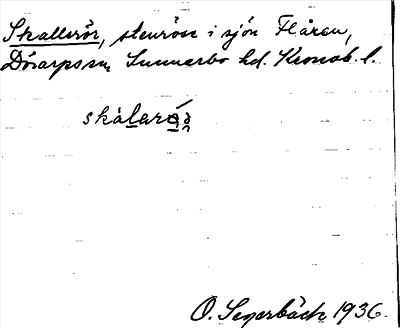 Skallerör, stenröse i sjön Flåren,
Dörarps sn, Sunnerbo hd. Kronob. l.
skálarǿ̀
O. Segerbäck 1936.